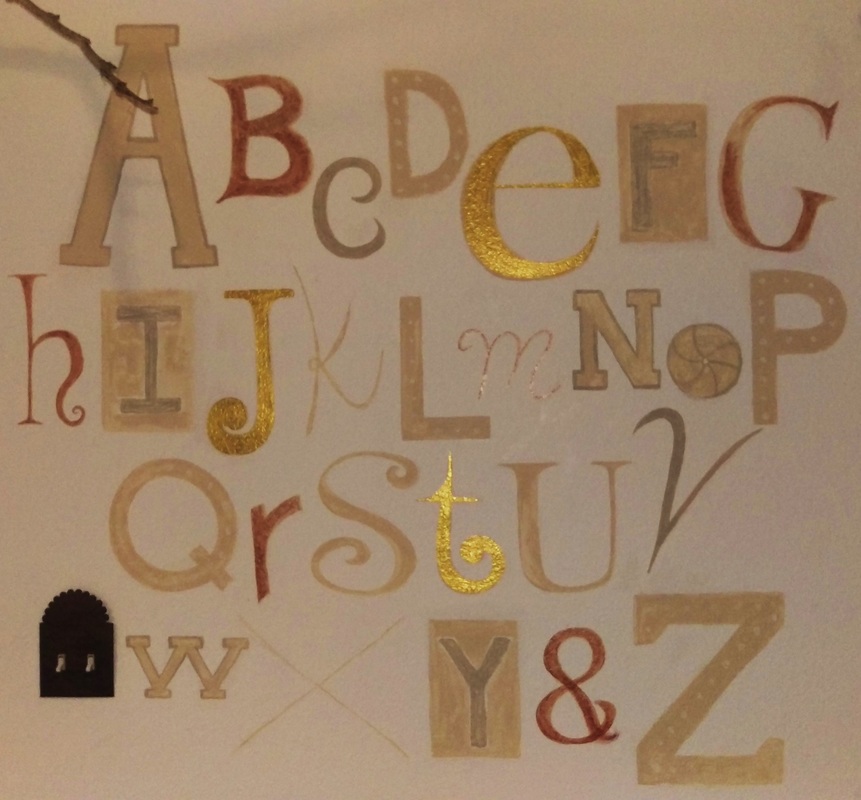 A B c D e F G
h I J k L m N o P
Q r S t U V
w X Y & Z